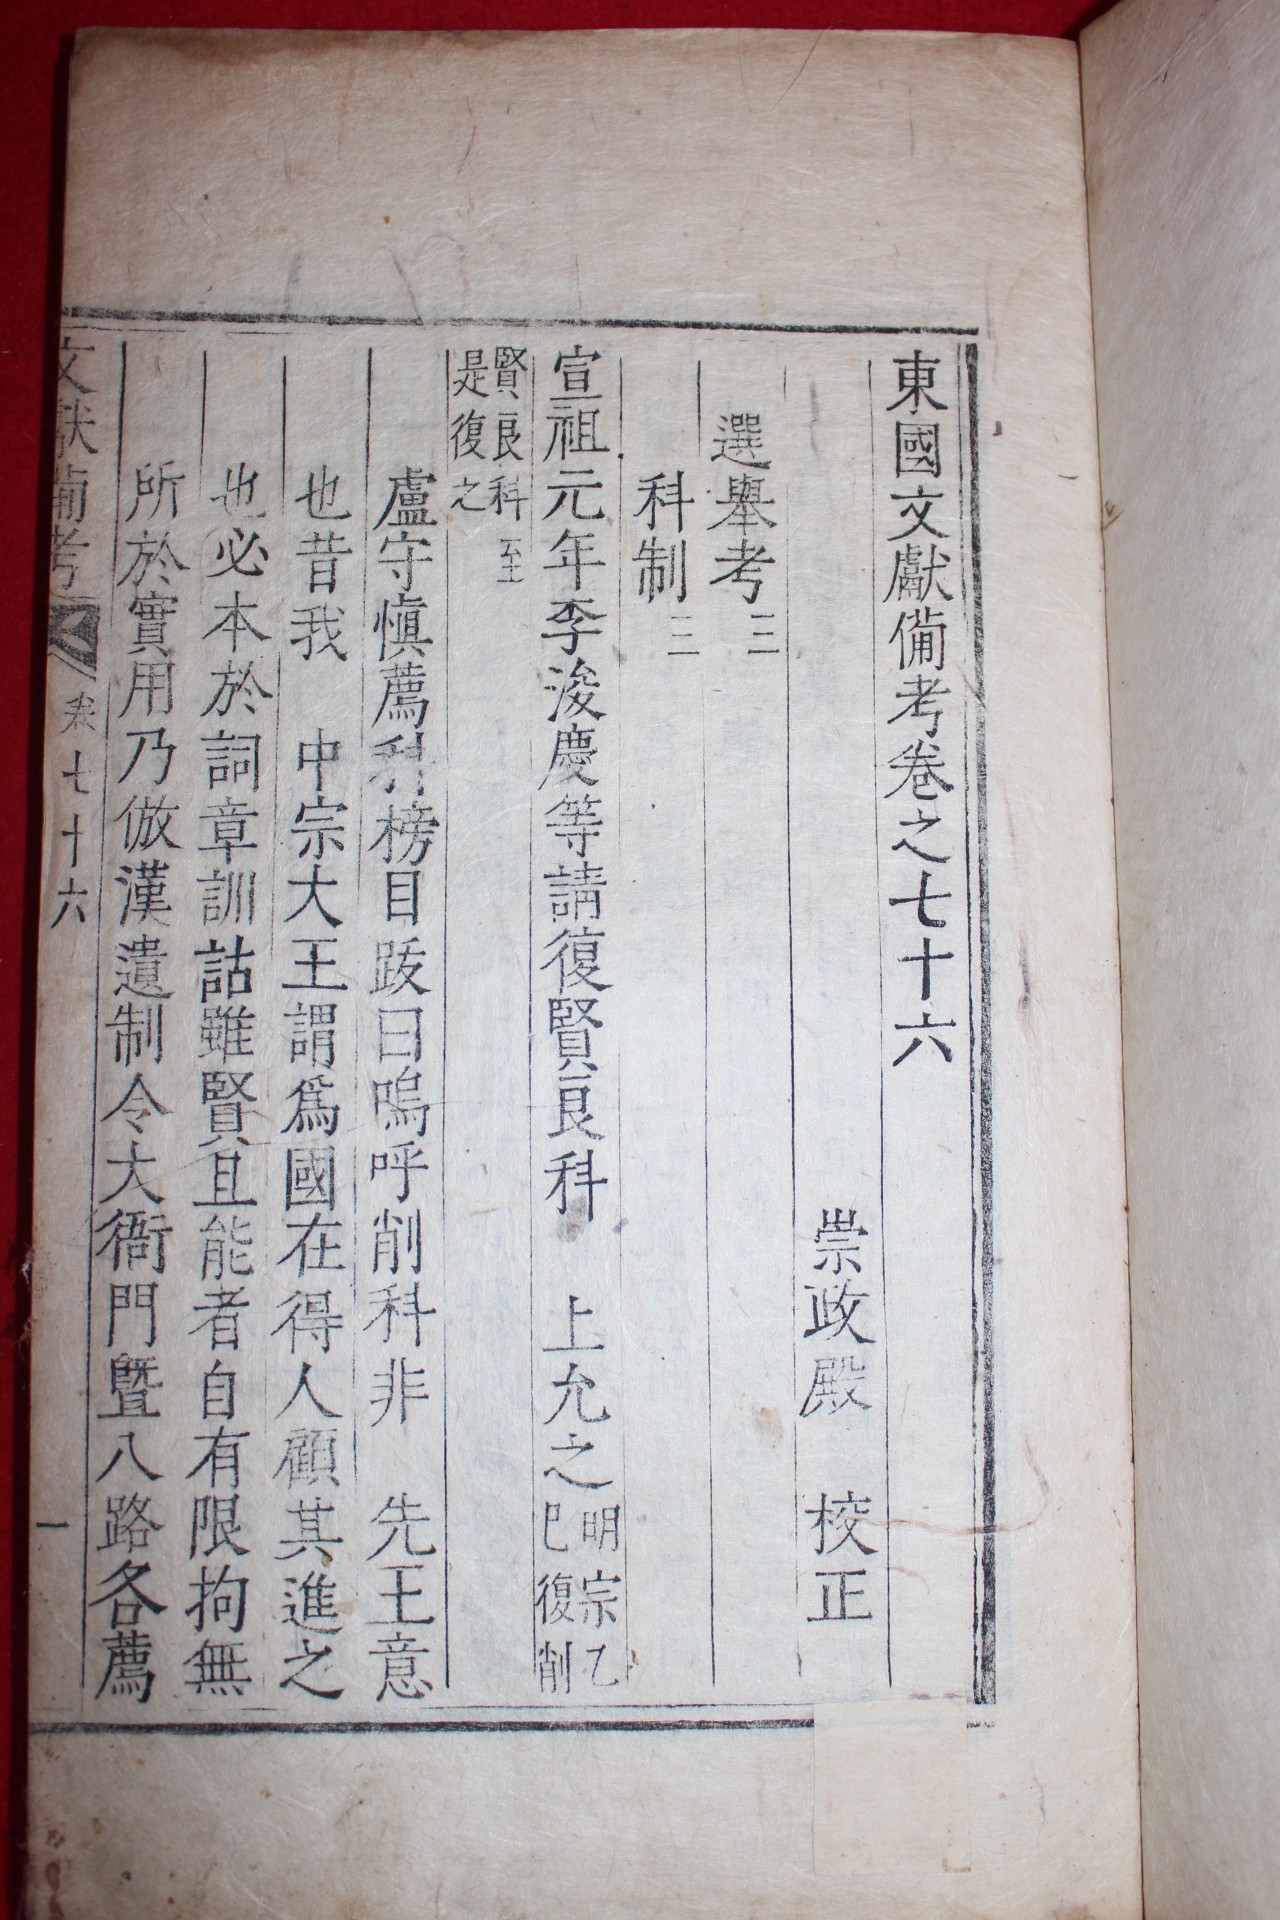 東國文獻備考卷之七十六
崇政殿 校正
選擧考三
科制三
宣祖元年李浚慶等請復賢良科 上允之明宗乙巳復削
賢良科至是復之
盧守愼薦科榜目跋曰嗚呼削科非 先王意
也昔我 中宗大王謂爲國在得人顧其進之
也必本於詞章訓詁雖賢且能者自有限拘無
所於實用乃倣漢遺制令大衙門曁八路各薦
文獻備考 卷七十六 一